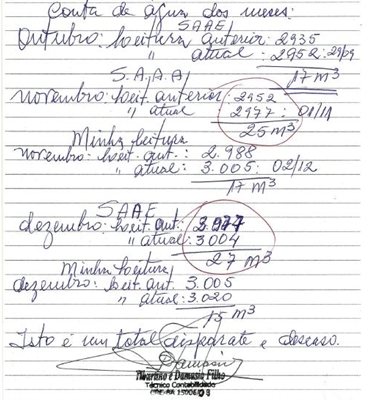 Conta de água dos meses:
SAAE/
Outubro: Leitura anterior: 2935
" atual: 2952: 29/09
17 m³
S.A.A/
novembro: Leit. anterior 2952
" atual 2977: 01/11
25 m³
Minha leitura
novembro: Leit. ant.: 2.988
" atual: 3.005: 02/12
17 m³
SAAE
dezembro: Leit. ant.: 2.977
" atual: 3.004
27 m³
Minha Leitura/
dezembro: Leit. ant. 3.005
" atual: 3.020
15 m³
Isto é um total disparate e descaso.
Damasio Filho
Técnico Contabilidade